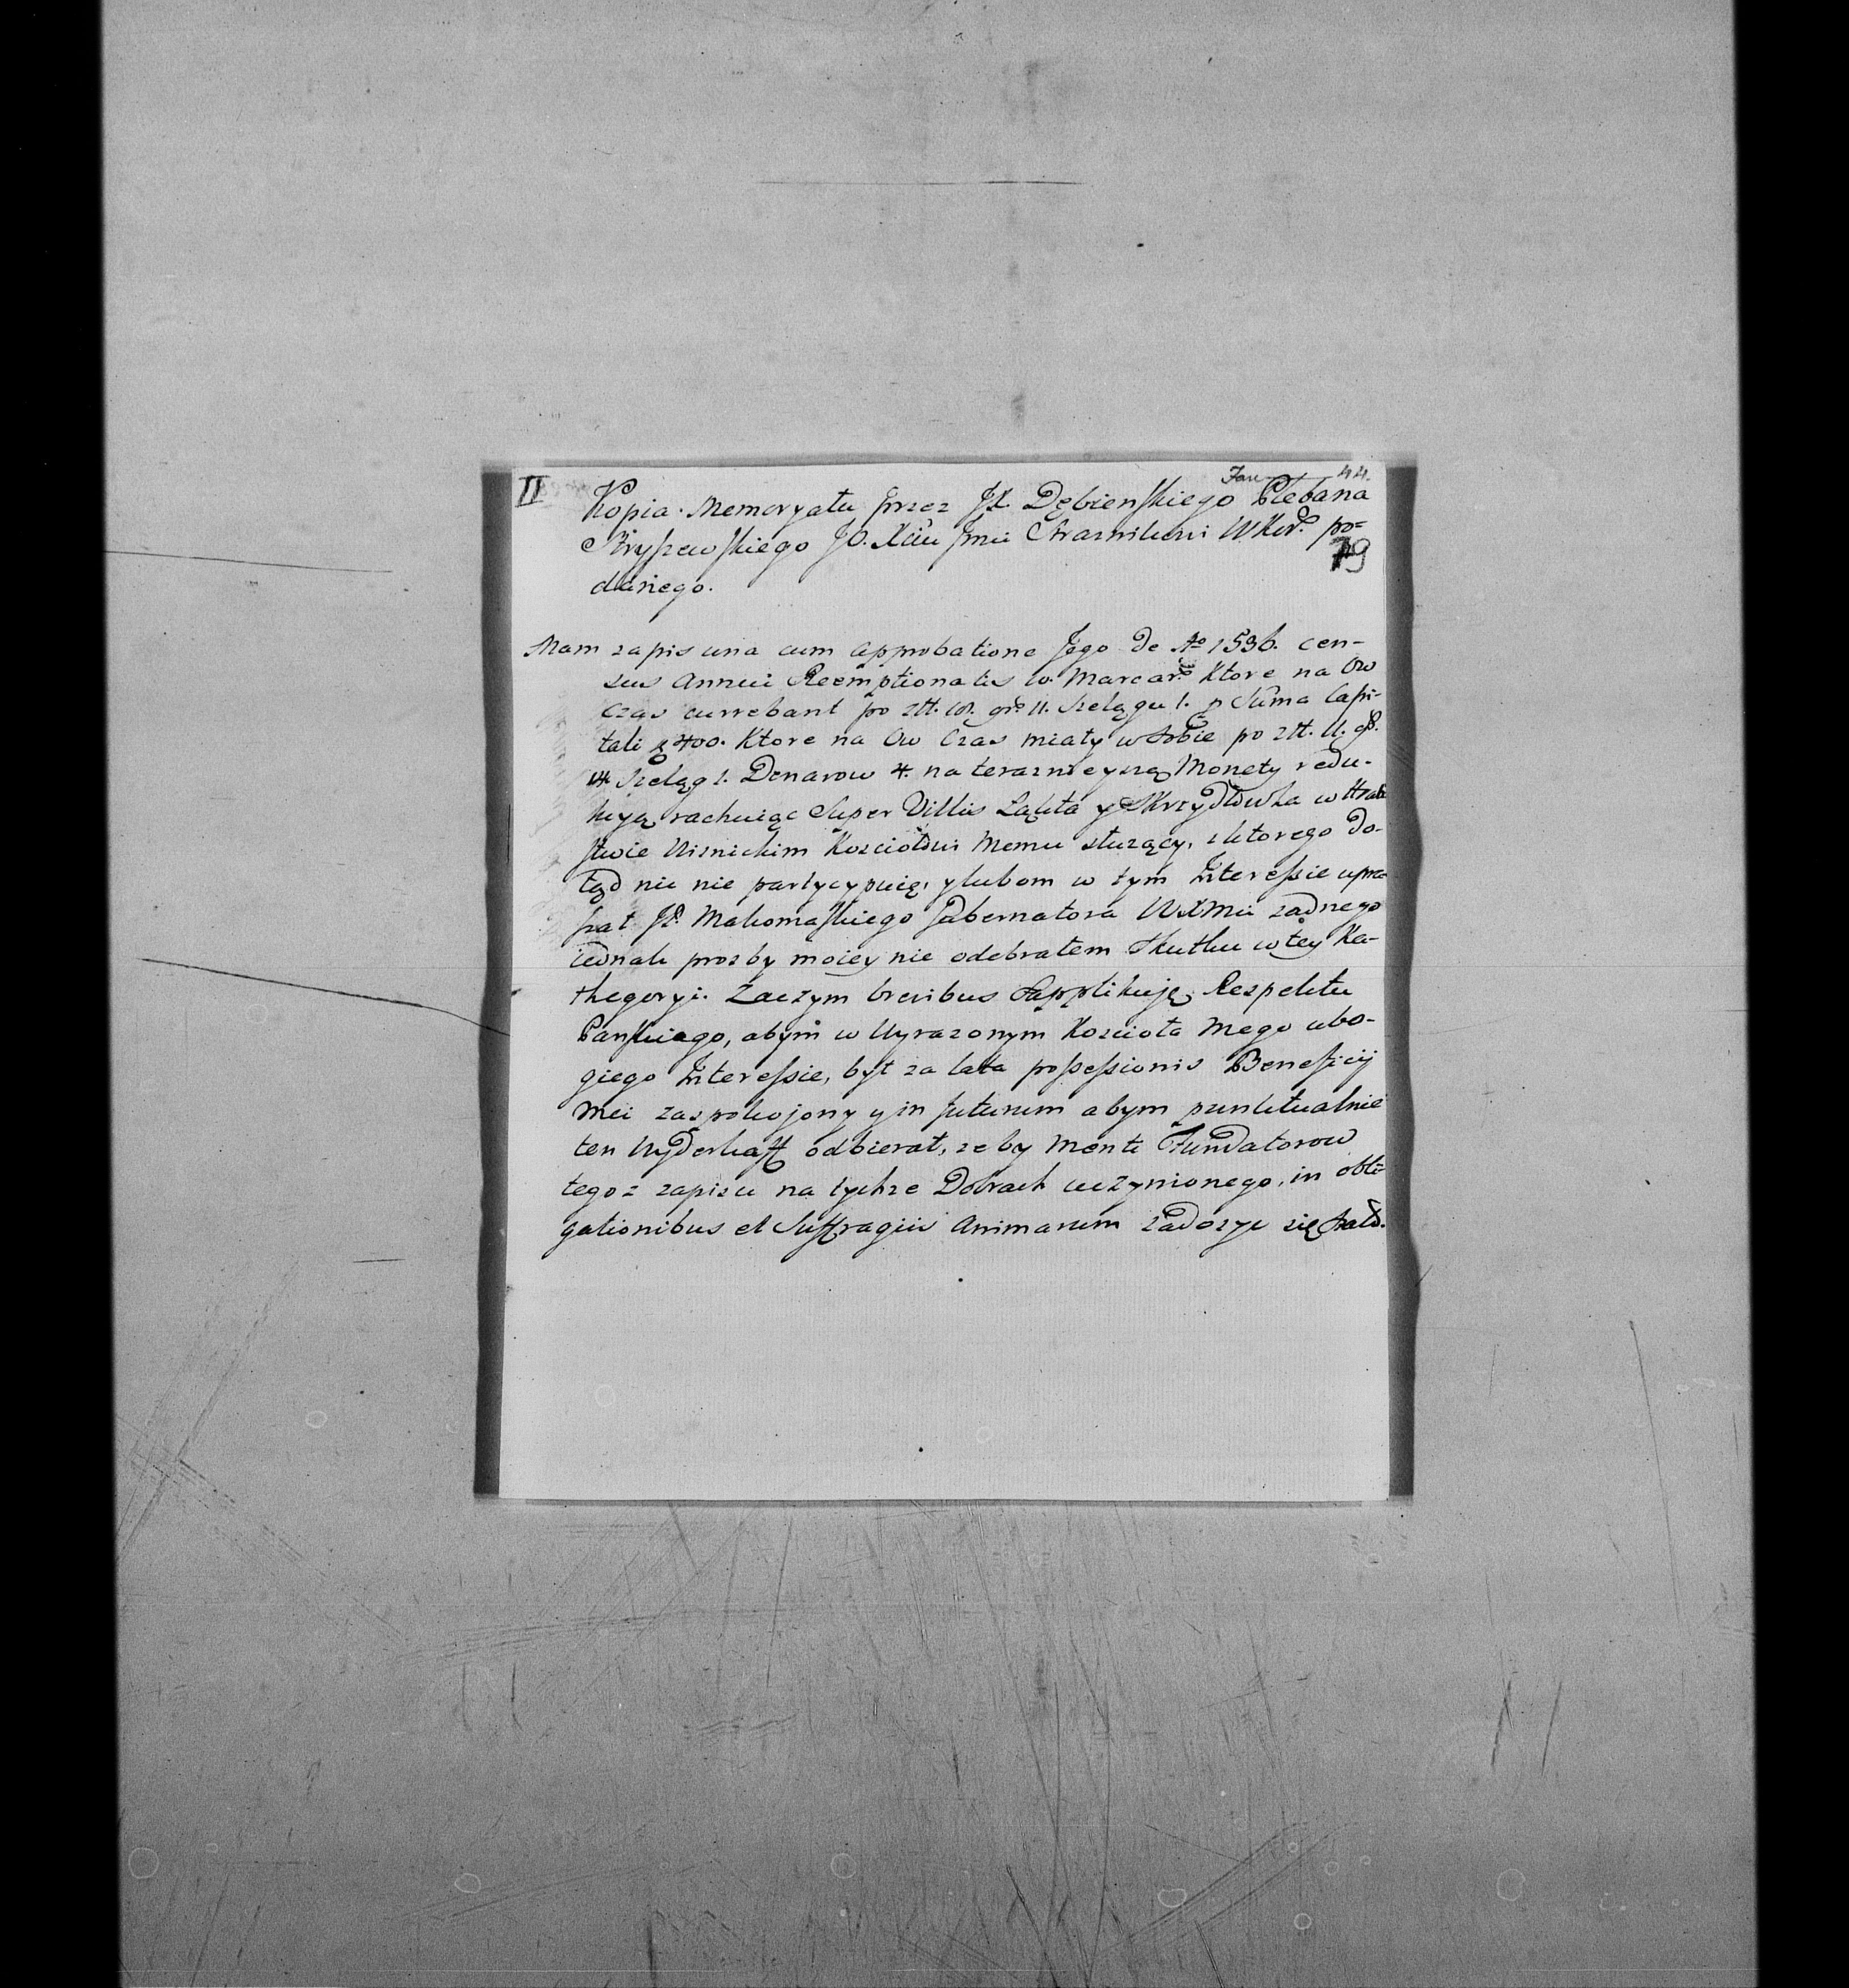 II
Jan 44.
Kopia Memoryału przez JX. Dębienskiego Plebana
Kryszewskiego JO. Xciu Jmci Straznikowi WKor. po=
79
danego.
Mam zapis una cum approbatione Jego de Ao 1536. cen-
sus Annui Reemptionalis Marcar. Ktore na Ow
Czas currebant po złł. gr. 11. Szelągu 1. Suma Capi-
tali 400. Ktore na Ow Czas miały w sobie po złł. 11. gr.
Szeląg 1. Denarow 4. na terazneyszą Monety redu-
kcyą rachuiąc Super Villis Łąkta y Skrzydlówka w Hrab
stwie Wisnickim Kosciołowi Memu słuzący, z ktorego do-
tąd nic nie partycypuię, ylubom w tym Interessie upra-
szał JP. Makomaskiego Gubernatora WXMci zadnego
iednak prozby moiey nie odebrałem Skutku w tey Ka-
thegoryi. Zaczym brevibus Supplikuję Respektu
Panskiego, abym w Wyrazonym Koscioła Mego ubo-
giego Interessie, był za lata possessionis Beneficij
Mei zaspokojony y in futurum abym punktualnie
ten Wyderkaff odbierał, ze by Menti Fundatorow
tegoz zapisu na tychze Dobrach uczynionego, in obli-
gationibus et Suffragiis Animarum zadosyc się stało.